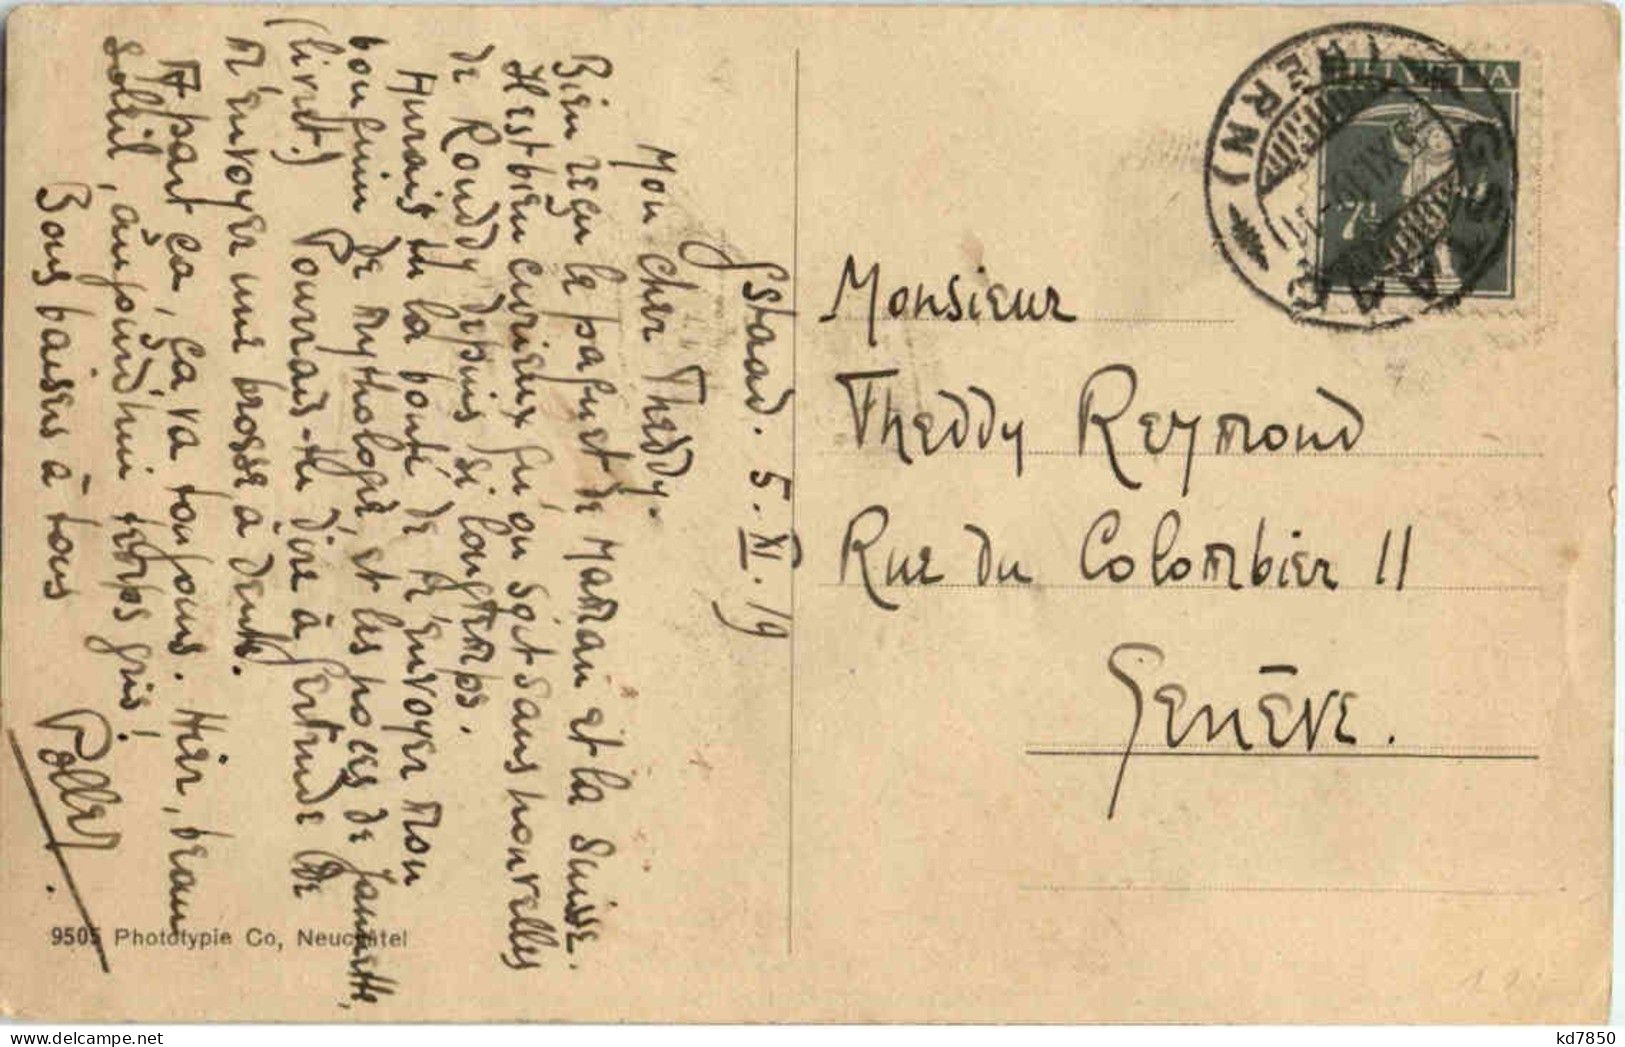 Gstaad. 5. XI. 19
Mon cher Theddy.
Bien reçu le paquet de Maman et la Suisse.
Il est bien curieux qu'on soit sans nouvelles
de Ronddy depuis si longtemps.
Aurais-tu la bonté de m'envoyer mon
bouquin de mythologie, et les noces de Jannette,
(livret.) Pourrais-tu dire à Gertrude de
m'envoyer une brosse à dents.
A part ça, ça va toujours. Hier, beau
soleil, aujourd'hui temps gris!
Bons baisers à tous
9505 Phototypie Co, Neuchâtel
HELVETIA
7½
GSTAAD
(BERN)
Monsieur
Theddy Reymond
Rue du Colombier 11
Genève.
kd7850